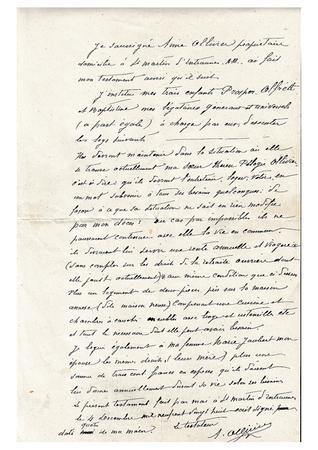 Je soussigné Aimé Ollivier propriétaire
domicilié à St Martin d'Entraunes AM. ai fait
mon testament ainsi qu'il suit
J'institue mes trois enfants Prosper, Alfred
et Baptistine mes légataires généraux et universels
(à part égale) à charge par eux d'exécuter
les legs suivants
Ils devront maintenir dans la situation où elle
se trouve actuellement ma sœur Ollivier
c'est à dire qu'ils devront l'entretenir, loger, vêtir, en
un mot subvenir à tous ses besoins quelconques. De
façon à ce que sa situation ne soit en rien modifiée
par mon décès. Au cas par impossible ils ne
pourraient continuer avec elle la vie en commun,
ils devront lui servir une rente annuelle et viagère
(sans compter sur les droits de la retraite ouvrière dont
elle jouit actuellement) aux même condition que ci dessus
Plus un logement de deux pièces, pris sur la maison
annexe (dite maison neuve) Comprenant une cuisine et
chambre à coucher meublée avec linge et ustensiles etc
et tout le nécessaire dont elle peut avoir besoin.
Je lègue également à ma femme Marie Jaubert mon
épouse les mêmes droits (leur mère) plus une
somme de trois cent francs en espèces qu'ils devront
leu donner annuellement durant sa vie selon ses besoins
Le présent testament fait par moi à St Martin d'Entraunes
le 4 Décembre mil neuf cent vingt huit écrit signé
daté de ma main. Le testateur
A. Ollivier